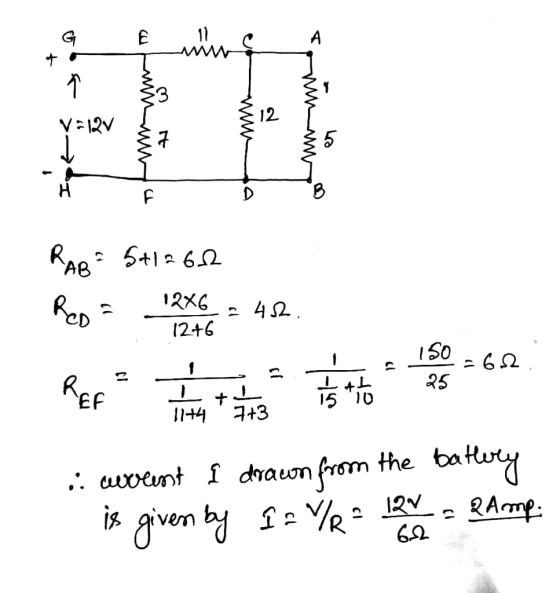 G E 11 C A
+
3 1
V=12V 12
7 5
-
H F D B
R_AB = 5+1 = 6Ω
R_CD = 12×6 / 12+6 = 4Ω.
R_EF = 1 / (1/11+4 + 1/7+3) = 1 / (1/15 + 1/10) = 150/25 = 6Ω.
∴ current I drawn from the battery
is given by I = V/R = 12V/6Ω = 2Amp.